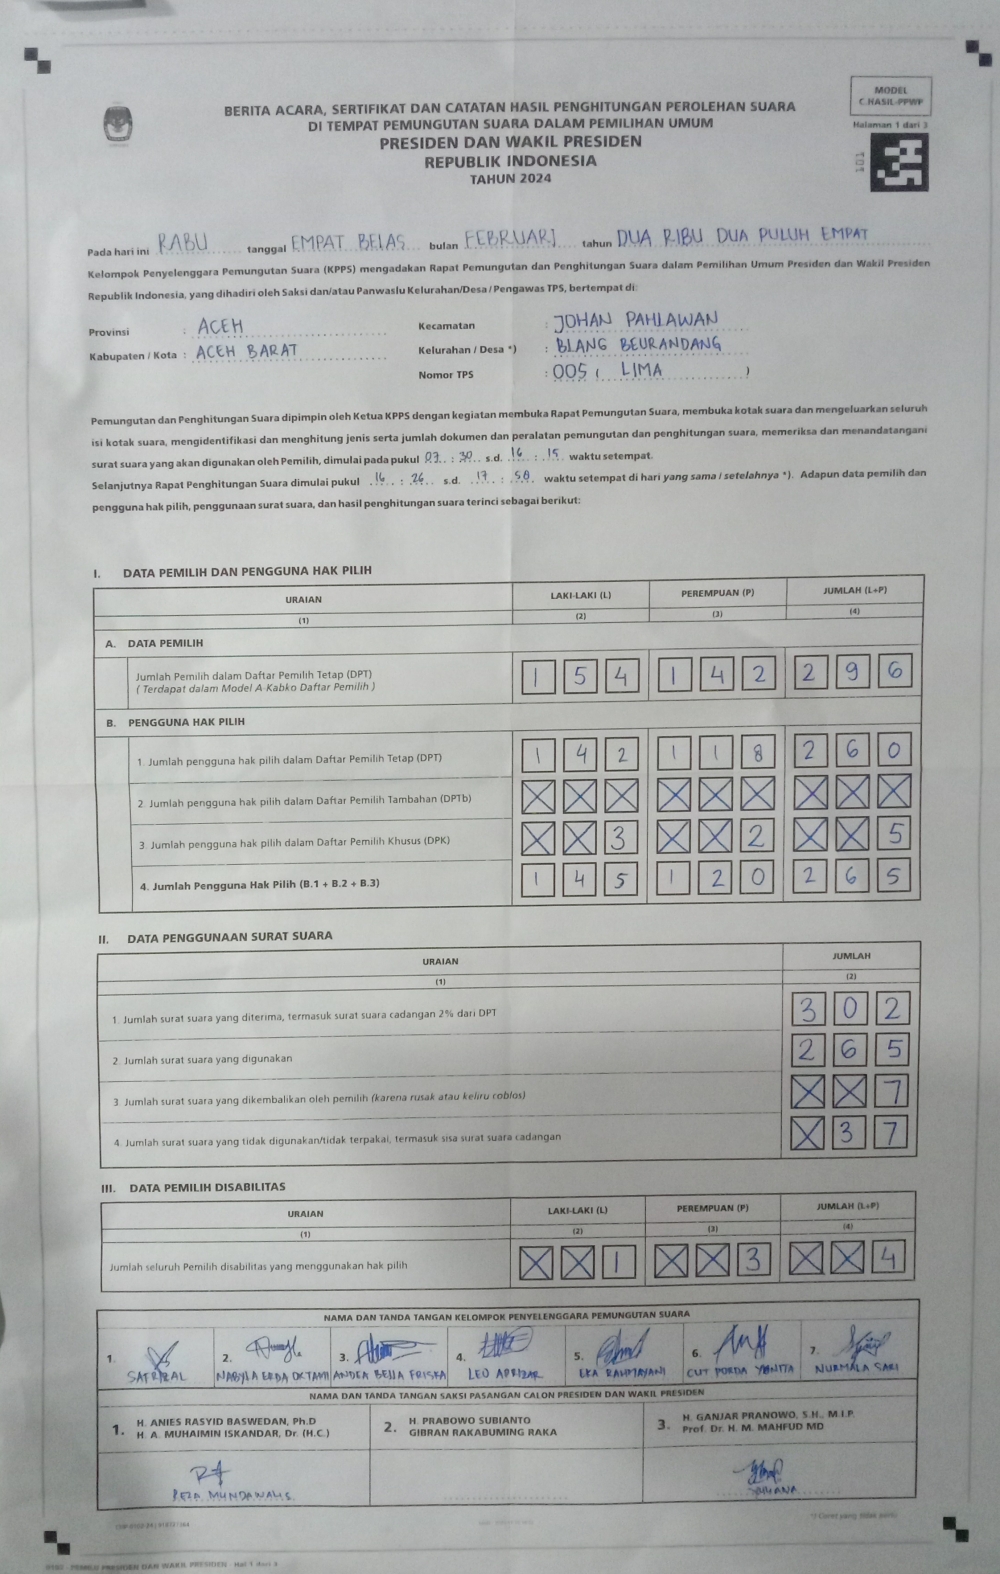 MODEL
C.HASIL-PPWP
Halaman 1 dari 3
101
BERITA ACARA, SERTIFIKAT DAN CATATAN HASIL PENGHITUNGAN PEROLEHAN SUARA
DI TEMPAT PEMUNGUTAN SUARA DALAM PEMILIHAN UMUM
PRESIDEN DAN WAKIL PRESIDEN
REPUBLIK INDONESIA
TAHUN 2024
Pada hari ini RABU tanggal EMPAT BELAS bulan FEBRUARI tahun DUA RIBU DUA PULUH EMPAT
Kelompok Penyelenggara Pemungutan Suara (KPPS) mengadakan Rapat Pemungutan dan Penghitungan Suara dalam Pemilihan Umum Presiden dan Wakil Presiden
Republik Indonesia, yang dihadiri oleh Saksi dan/atau Panwaslu Kelurahan/Desa / Pengawas TPS, bertempat di:
Provinsi : ACEH Kecamatan : JOHAN PAHLAWAN
Kabupaten / Kota : ACEH BARAT Kelurahan / Desa *) : BLANG BEURANDANG
Nomor TPS : 005 ( LIMA )
Pemungutan dan Penghitungan Suara dipimpin oleh Ketua KPPS dengan kegiatan membuka Rapat Pemungutan Suara, membuka kotak suara dan mengeluarkan seluruh
isi kotak suara, mengidentifikasi dan menghitung jenis serta jumlah dokumen dan peralatan pemungutan dan penghitungan suara, memeriksa dan menandatangani
surat suara yang akan digunakan oleh Pemilih, dimulai pada pukul 07 : 30 s.d. 16 : 15 waktu setempat.
Selanjutnya Rapat Penghitungan Suara dimulai pukul 16 : 26 s.d. 17 : 58 waktu setempat di hari yang sama / setelahnya *). Adapun data pemilih dan
pengguna hak pilih, penggunaan surat suara, dan hasil penghitungan suara terinci sebagai berikut:
I. DATA PEMILIH DAN PENGGUNA HAK PILIH
URAIAN LAKI-LAKI (L) PEREMPUAN (P) JUMLAH (L+P)
(1) (2) (3) (4)
A. DATA PEMILIH
Jumlah Pemilih dalam Daftar Pemilih Tetap (DPT) 1 5 4 1 4 2 2 9 6
( Terdapat dalam Model A-Kabko Daftar Pemilih )
B. PENGGUNA HAK PILIH
1. Jumlah pengguna hak pilih dalam Daftar Pemilih Tetap (DPT) 1 4 2 1 1 8 2 6 0
2. Jumlah pengguna hak pilih dalam Daftar Pemilih Tambahan (DPTb) X X X X X X X X X
3. Jumlah pengguna hak pilih dalam Daftar Pemilih Khusus (DPK) X X 3 X X 2 X X 5
4. Jumlah Pengguna Hak Pilih (B.1 + B.2 + B.3) 1 4 5 1 2 0 2 6 5
II. DATA PENGGUNAAN SURAT SUARA
URAIAN JUMLAH
(1) (2)
1. Jumlah surat suara yang diterima, termasuk surat suara cadangan 2% dari DPT 3 0 2
2. Jumlah surat suara yang digunakan 2 6 5
3. Jumlah surat suara yang dikembalikan oleh pemilih (karena rusak atau keliru coblos) X X 7
4. Jumlah surat suara yang tidak digunakan/tidak terpakai, termasuk sisa surat suara cadangan X 3 7
III. DATA PEMILIH DISABILITAS
URAIAN LAKI-LAKI (L) PEREMPUAN (P) JUMLAH (L+P)
(1) (2) (3) (4)
Jumlah seluruh Pemilih disabilitas yang menggunakan hak pilih X X 1 X X 3 X X 4
NAMA DAN TANDA TANGAN KELOMPOK PENYELENGGARA PEMUNGUTAN SUARA
1. 2. 3. 4. 5. 6. 7.
SAFRIZAL NABYLA ERDA OKTAMI ANDEA BELLA FRISKA LEO APRIZAR EKA RAHMAYANI CUT YONITA NURMALA SARI
NAMA DAN TANDA TANGAN SAKSI PASANGAN CALON PRESIDEN DAN WAKIL PRESIDEN
1. H. ANIES RASYID BASWEDAN, Ph.D
H. A. MUHAIMIN ISKANDAR, Dr. (H.C.)
2. H. PRABOWO SUBIANTO
GIBRAN RAKABUMING RAKA
3. H. GANJAR PRANOWO, S.H., M.I.P.
Prof. Dr. H. M. MAHFUD MD
REZA MUNDAWALIS
*) Coret yang tidak perlu
PRESIDEN DAN WAKIL PRESIDEN - Hal 1 dari 3